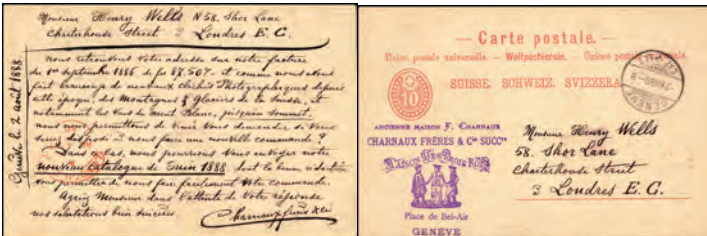 Monsieur Henry Wells N 58. Shor Lane
Charterhouse Street 3 Londres E. C.
Genève le 2 août 1888.
Nous retrouvons votre adresse sur notre facture
du 1er septembre 1886 de frs 87,50 et comme nous avons
fait beaucoup de nouveaux clichés Photographiques depuis
cette époque, des Montagnes & Glaciers de la Suisse, et
notamment les Vues du Mont Blanc, jusqu'au sommet,
nous nous permettons de venir Vous demander si Vous
seriez disposé à nous faire une nouvelle commande ?
Dans ce cas, nous pourrions Vous envoyer notre
nouveau Catalogue de Juin 1888, dont la
Vous permettra de nous faire facilement votre commande.
Agréez Monsieur dans l'attente de Votre réponse
nos salutations bien sincères.
Charnaux frères & Cie
— Carte postale. —
Union postale universelle. — Weltpostverein. — Unione postale universale.
SUISSE. SCHWEIZ. SVIZZERA.
10
GENÈVE
ANCIENNE MAISON F. CHARNAUX
CHARNAUX FRÈRES & Cie SUCCrs
MAISON DES TROIS ROIS
Place de Bel-Air
GENÈVE
Monsieur Henry Wells
58. Shor Lane
Charterhouse Street
3 Londres E. C.